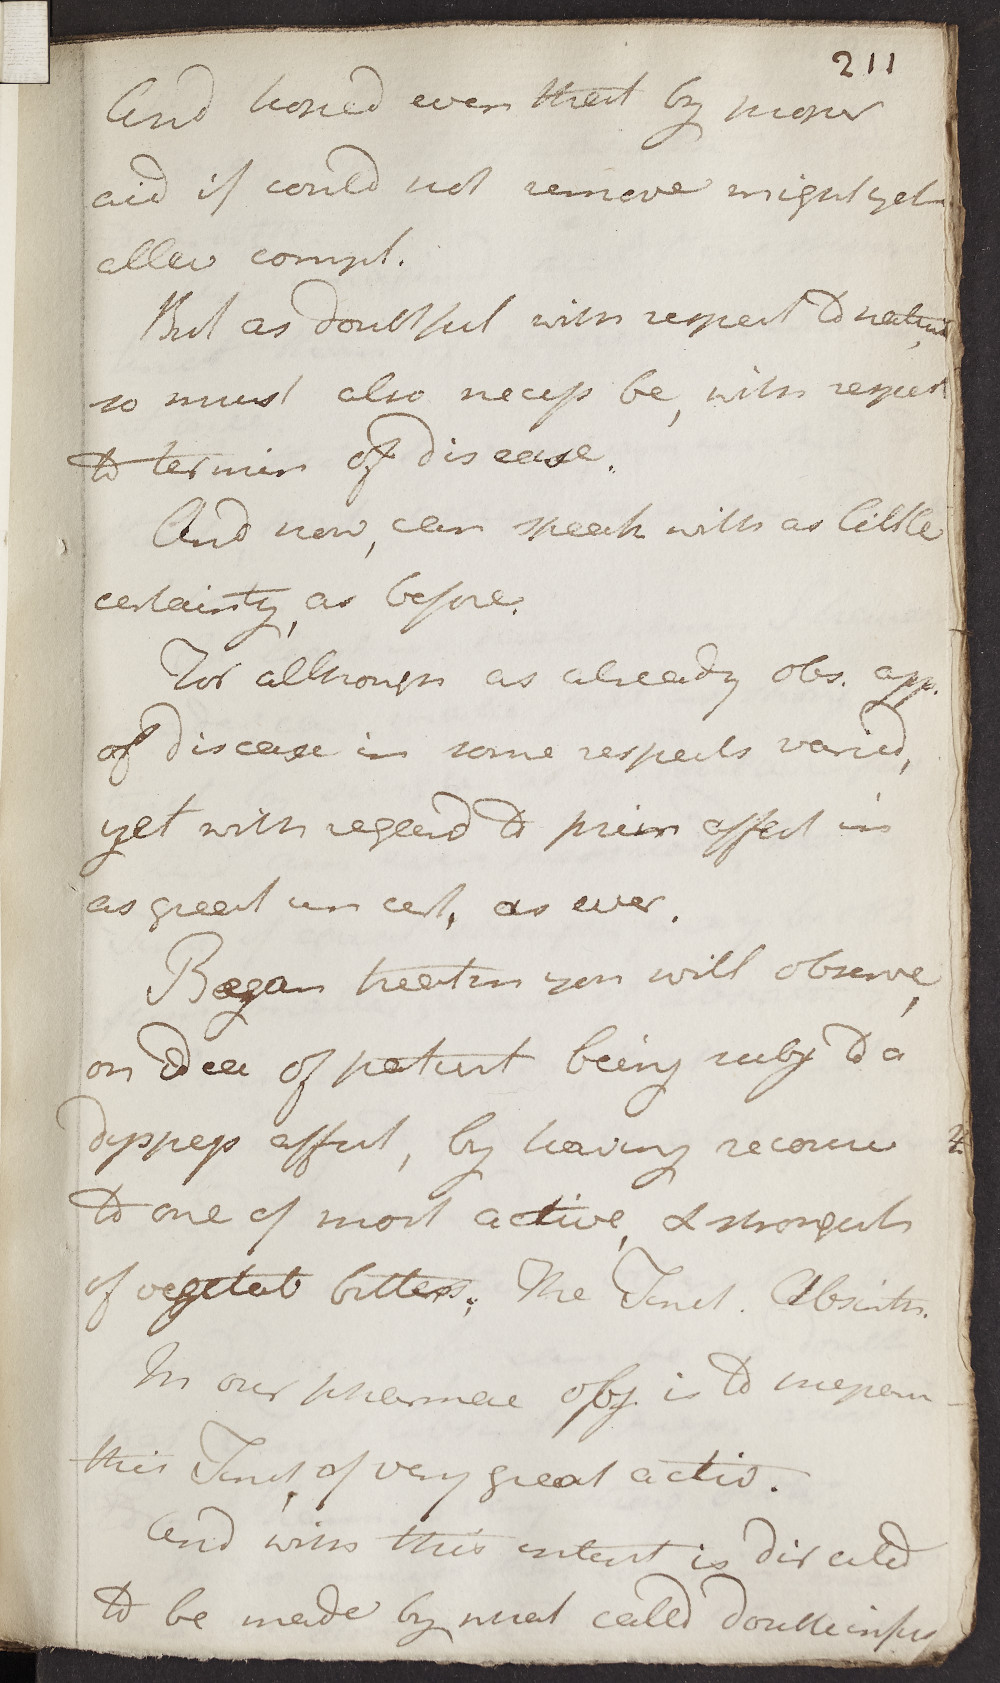 211
And hoped even that by proper
aid if could not remove might yet
allev compl.
But as doubtful with respect to nature,
so must also necess be, with respect
to termin of disease.
And now, can speak with as little
certainty, as before.
For although as already obs. app.
of disease in some respects varied,
yet with regard to prim affect in
as great uncert, as ever.
Began treatm you will observe,
on Idea of patient being subj to a
dyspeps affect, by having recourse
to one of most active, & strongest
of vegetab bitters; The Tinct. Absinth.
In our pharmac obj. is to prepare
this Tinct, of very great activ.
And with this intent is directed
to be made by what called double infus